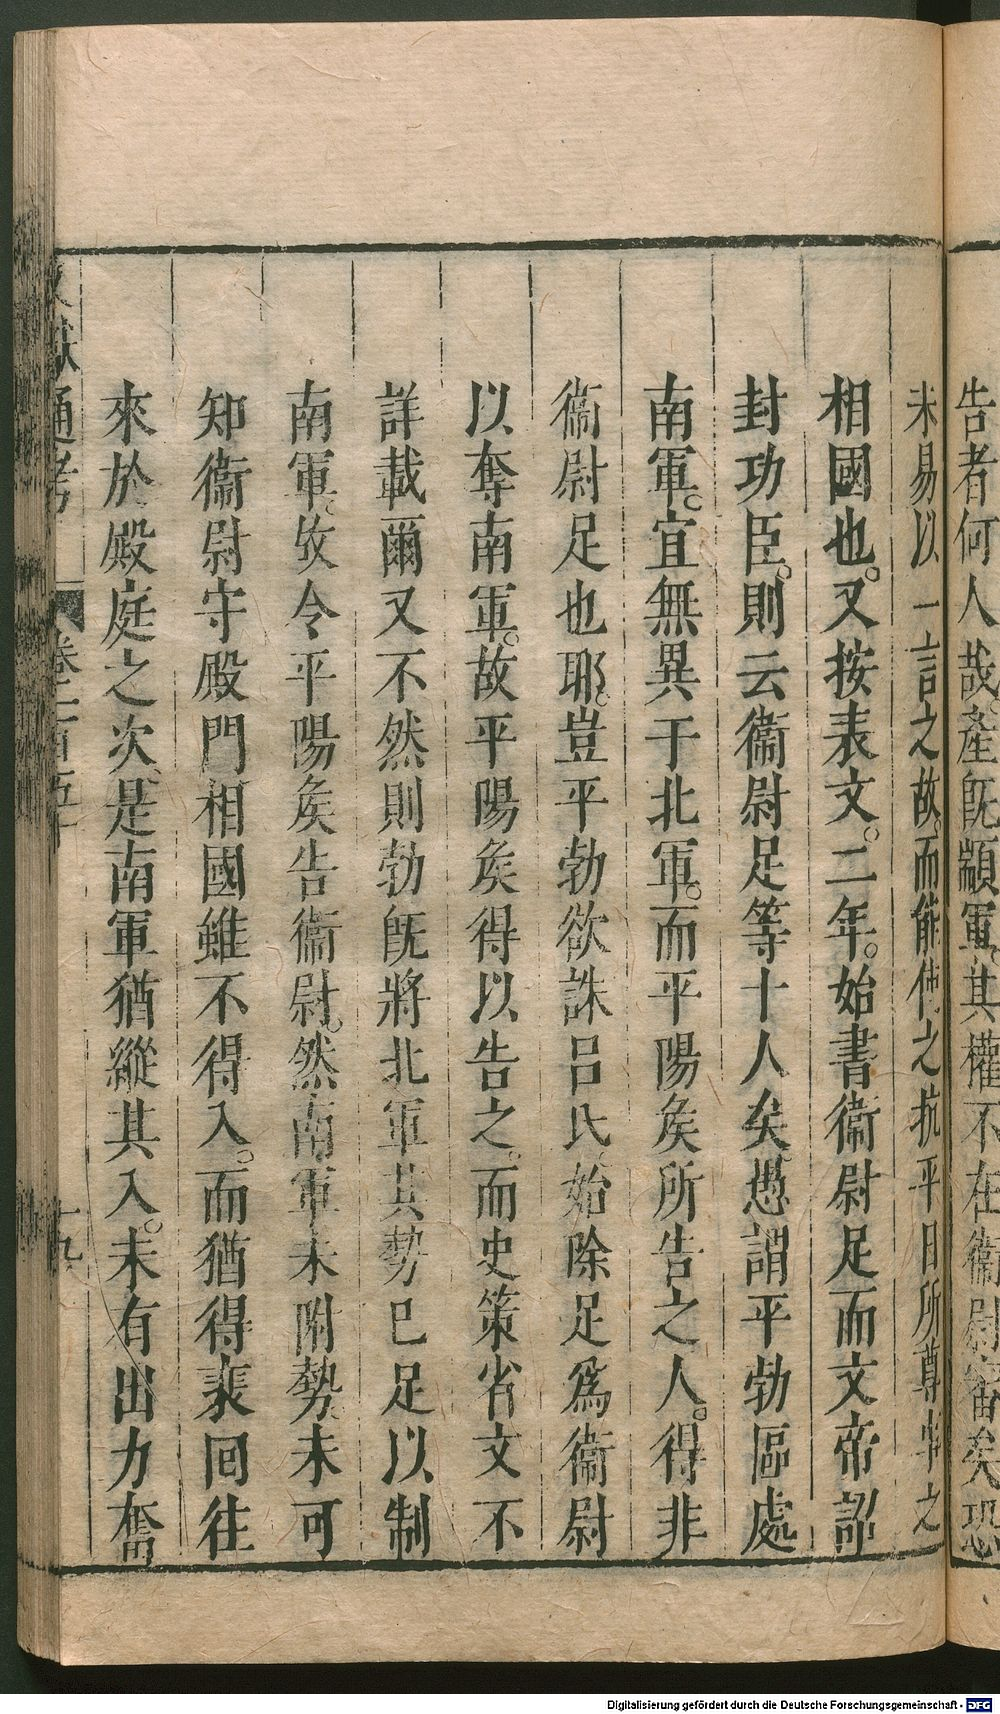 告者何人哉產既顓軍其權不在衞尉審矣恐
未易以一言之故而能使之抗平日所尊事之
相國也又按表文二年始書衞尉足而文帝詔
封功臣則云衞尉足等十人矣愚謂平勃區處
南軍宜無異于北軍而平陽矦所告之人得非
衞尉足也耶豈平勃欲誅呂氏始除足爲衞尉
以奪南軍故平陽矦得以告之而史策省文不
詳載爾又不然則勃旣將北軍其勢已足以制
南軍故令平陽矦告衞尉然南軍未附勢未可
知衞尉守殿門相國雖不得入而猶得裴回往
來於殿庭之次是南軍猶縱其入未有出力奮
文獻通考 卷一百五十 十九
Digitalisierung gefördert durch die Deutsche Forschungsgemeinschaft - DFG